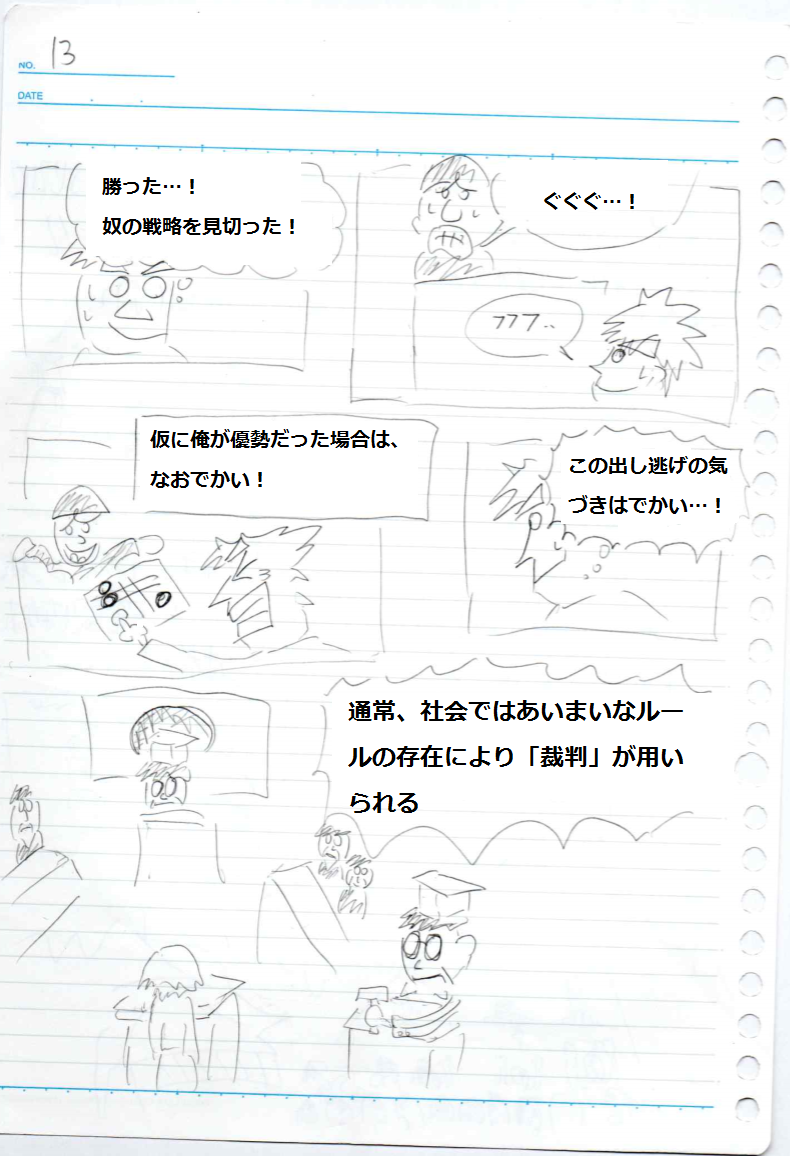 NO. 13
DATE
ぐぐぐ…！
勝った…！
奴の戦略を見切った！
フフフ..
この出し逃げの気
づきはでかい…！
仮に俺が優勢だった場合は、
なおでかい！
通常、社会ではあいまいなルー
ルの存在により「裁判」が用い
られる